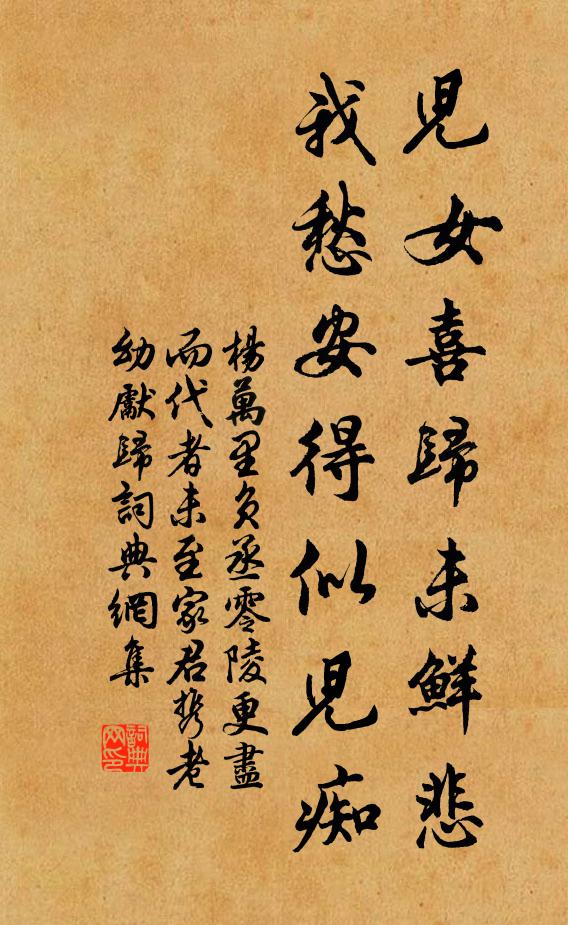 兒女喜歸未鮮悲
我愁安得似兒痴
楊萬里負丞零陵更盡
而代者未至家君携老
幼獻歸詞典網集
詞典
网印